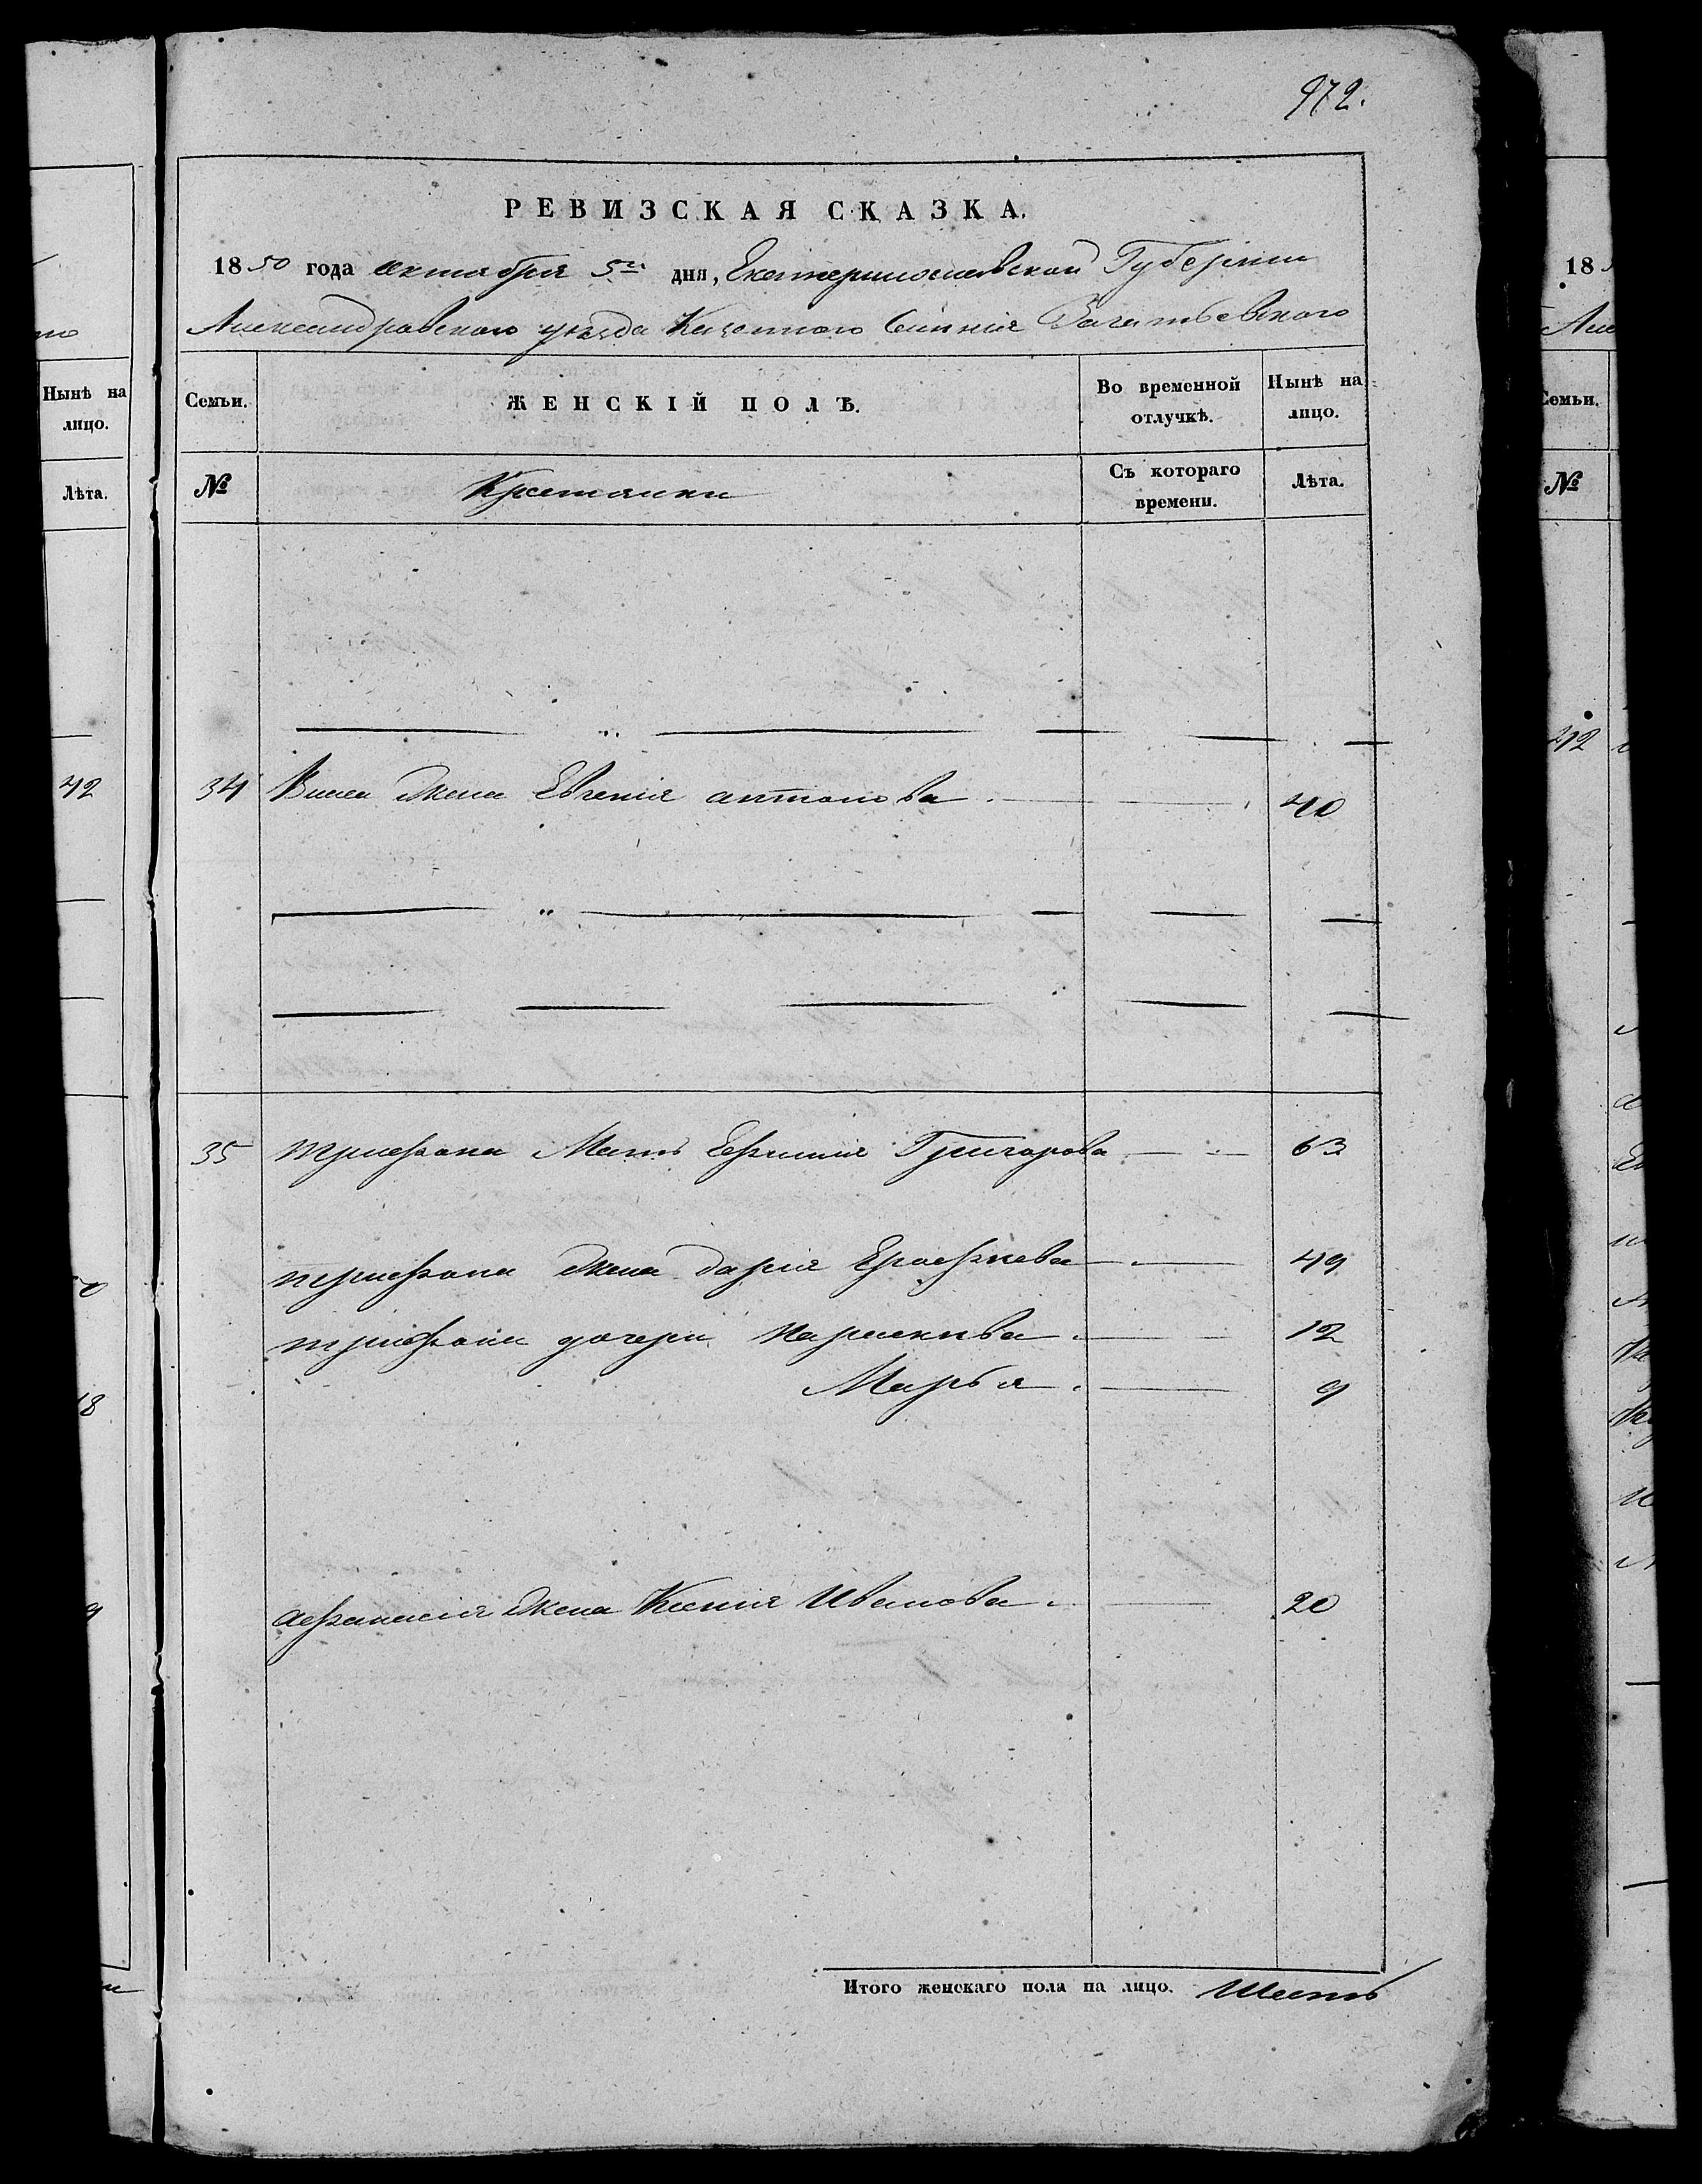 972.
РЕВИЗСКАЯ СКАЗКА.
1850 года октября 5го дня, Екатеринославской Губернии
Александровского уезда Казенного Селения Зачатьевского
Семьи. ЖЕНСКІЙ ПОЛЪ. Во временной отлучкѣ. Нынѣ на лицо.
№ Крестянки Съ котораго времени. Лѣта.
34 жена Евгения антонова 40
35 трифона Мать Ефимия Григорова 63
трифона жена дария Ерофеева 49
трифона дочери Парасківа 12
Марья 9
афанасия жена Ксения Иванова 20
Итого женскаго пола на лицо. Шесть
Нынѣ на
лицо.
Лѣта.
42
18
Семьи.
№
42